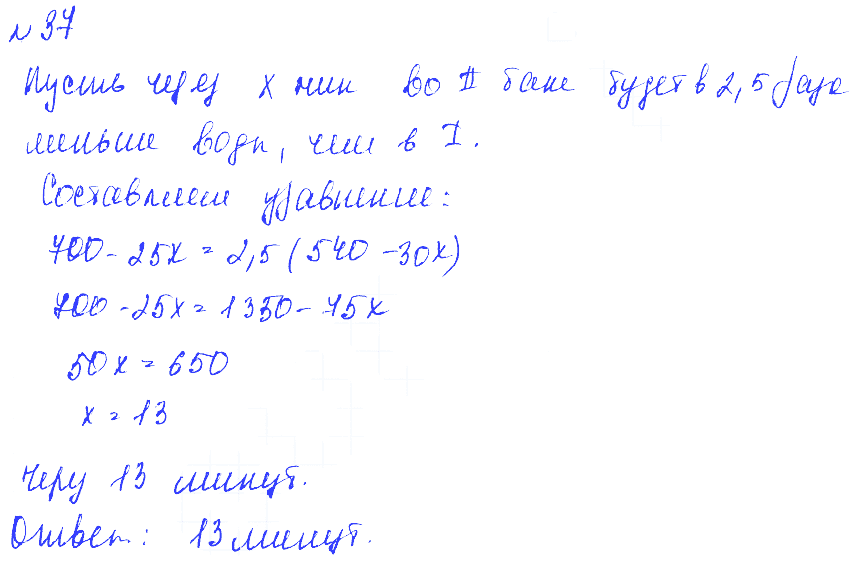 № 37
Пусть через x мин во II баке будет в 2,5 раза
меньше воды, чем в I.
Составляем уравнение:
700 - 25x = 2,5 (540 - 30x)
700 - 25x = 1350 - 75x
50x = 650
x = 13
Через 13 минут.
Ответ: 13 минут.